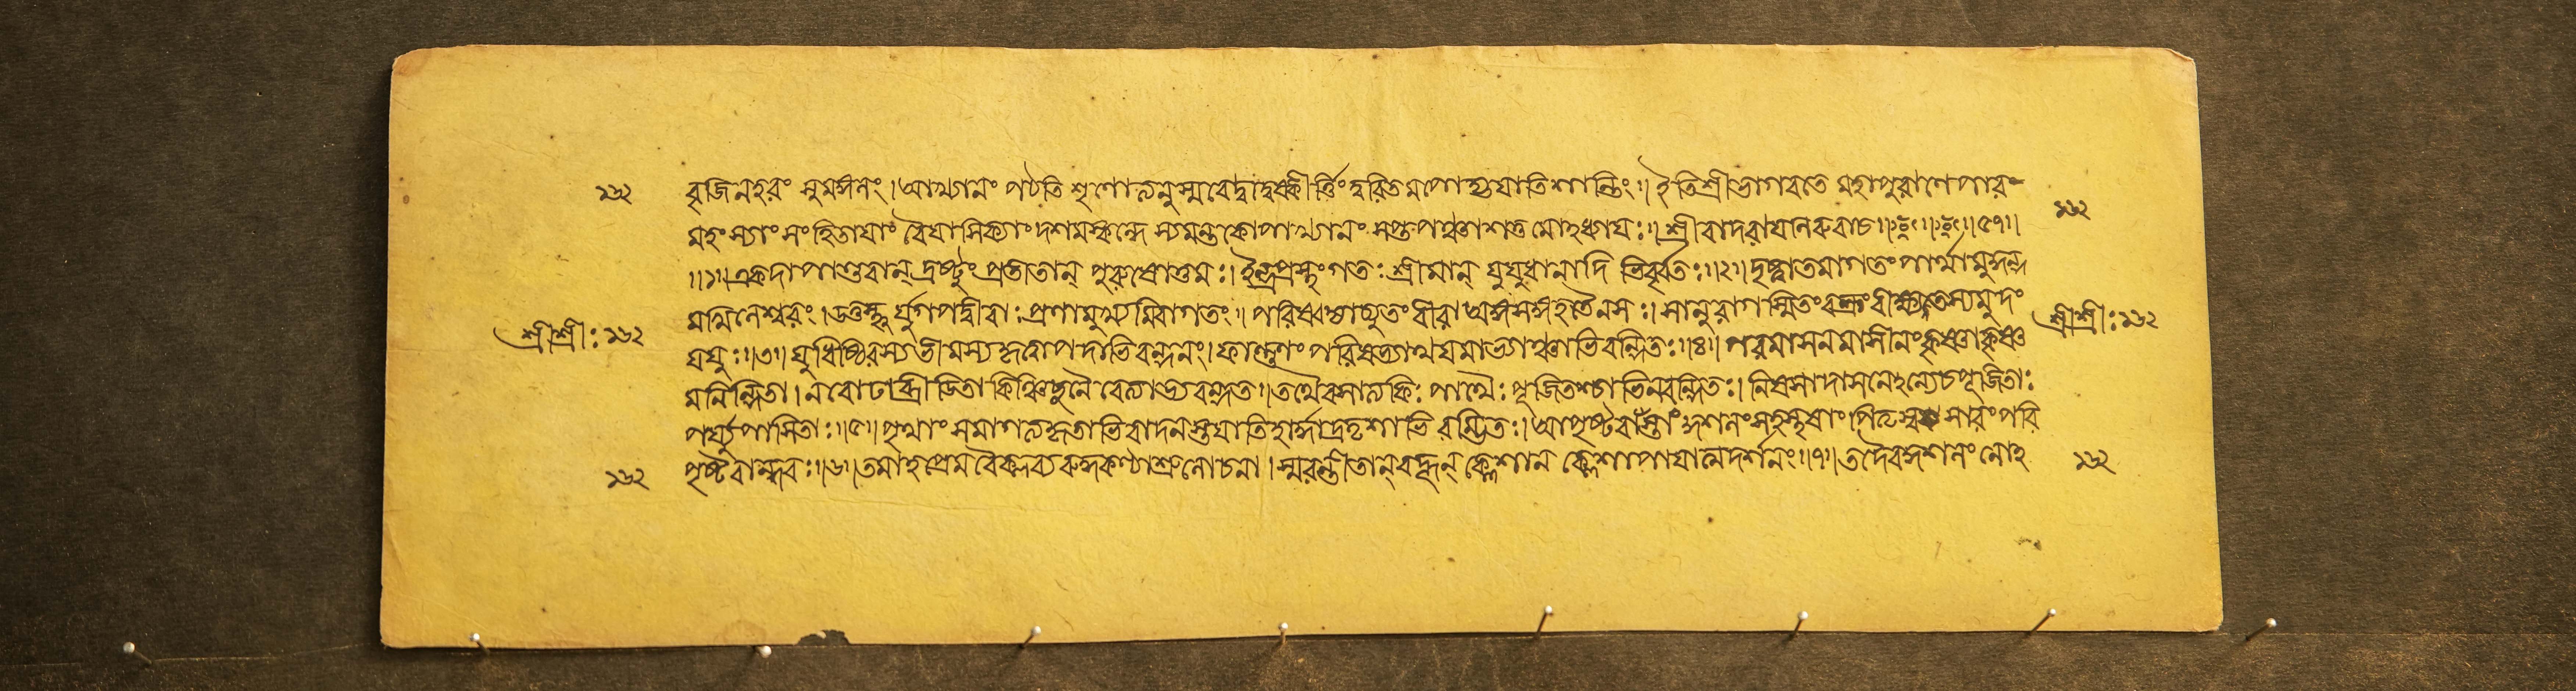 ১৬২
বৃজিনহরং সুমঙ্গলং। আখ্যানং পঠতি শৃণোত্যনুস্মরেদ্বাদুষ্কীর্ত্তিং দুরিতমপোহ্যযাতিশান্তিং॥ ইতিশ্রীভাগবতে মহাপুরাণেপারম
১৬২
মহংস্যাং সংহিতাযাং বৈযাসিক্যাং দশমস্কন্ধে স্যমন্তকোপাখ্যানং সপ্তপঞ্চাশত্তমোঽধ্যাযঃ॥ শ্রীবাদরাযনিরুবাচ॥ ৫৭॥
॥১॥ একদাপাণ্ডবান্ দ্রষ্টুং প্রতীতান্ পুরুষোত্তমঃ। ইন্দ্রপ্রস্থংগতঃ শ্রীমান্ যুযুধানাদিভির্বৃতঃ॥২॥ দৃষ্ট্বাতমাগতংপার্থামুকুন্দ
শ্রীশ্রীঃ ১৬২
মখিলেশ্বরং। উত্তস্থুর্যুগপদ্বীরাঃ প্রাণামুখ্যমিবাগতং॥ পরিষ্বজ্যাচ্যুতংবীরাঅঙ্গসঙ্গহতৈনসঃ। সানুরাগস্মিতংবক্ত্রংবীক্ষ্যতস্যমুদং
শ্রীশ্রীঃ ১৬২
যযুঃ॥৩॥ যুধিষ্ঠিরস্যভীমস্যকৃত্বাপাদাভিবন্দনং। ফাল্গুণংপরিরভ্যাথযমাভ্যাঞ্চাভিবন্দিতঃ॥৪॥ পরমাসনমাসীনংকৃষ্ণাকৃষ্ণ
মনিন্দিতা। নবোঢাব্রীডিতাকিঞ্চিচ্ছনৈরেত্যাভ্যবন্দত॥ তথৈবসাত্যকিঃ পার্থৈঃ পূজিতশ্চাভিবন্দিতঃ। নিষসাদাসনেঽন্যেচপূজিতাঃ
পর্য্যুপাসিতাঃ॥৫॥ পৃথাংসমাগত্যকৃতাভিবাদনস্তযাতিহার্দ্দার্দ্রদৃশাভিরম্ভিতঃ। আপৃষ্টবাংস্তাংকুশলংসহস্নুষাং পিতৃষ্বসারংপরি
১৬২
পৃষ্টবান্ধবঃ॥৬॥ তমাহপ্রেমবৈক্লব্যরুদ্ধকণ্ঠাশ্রুলোচনা। স্মরন্তীতান্বহূন্ ক্লেশান ক্লেশাপাযাত্মদর্শনং॥৭॥ তদৈবকুশলংনোঽ
১৬২